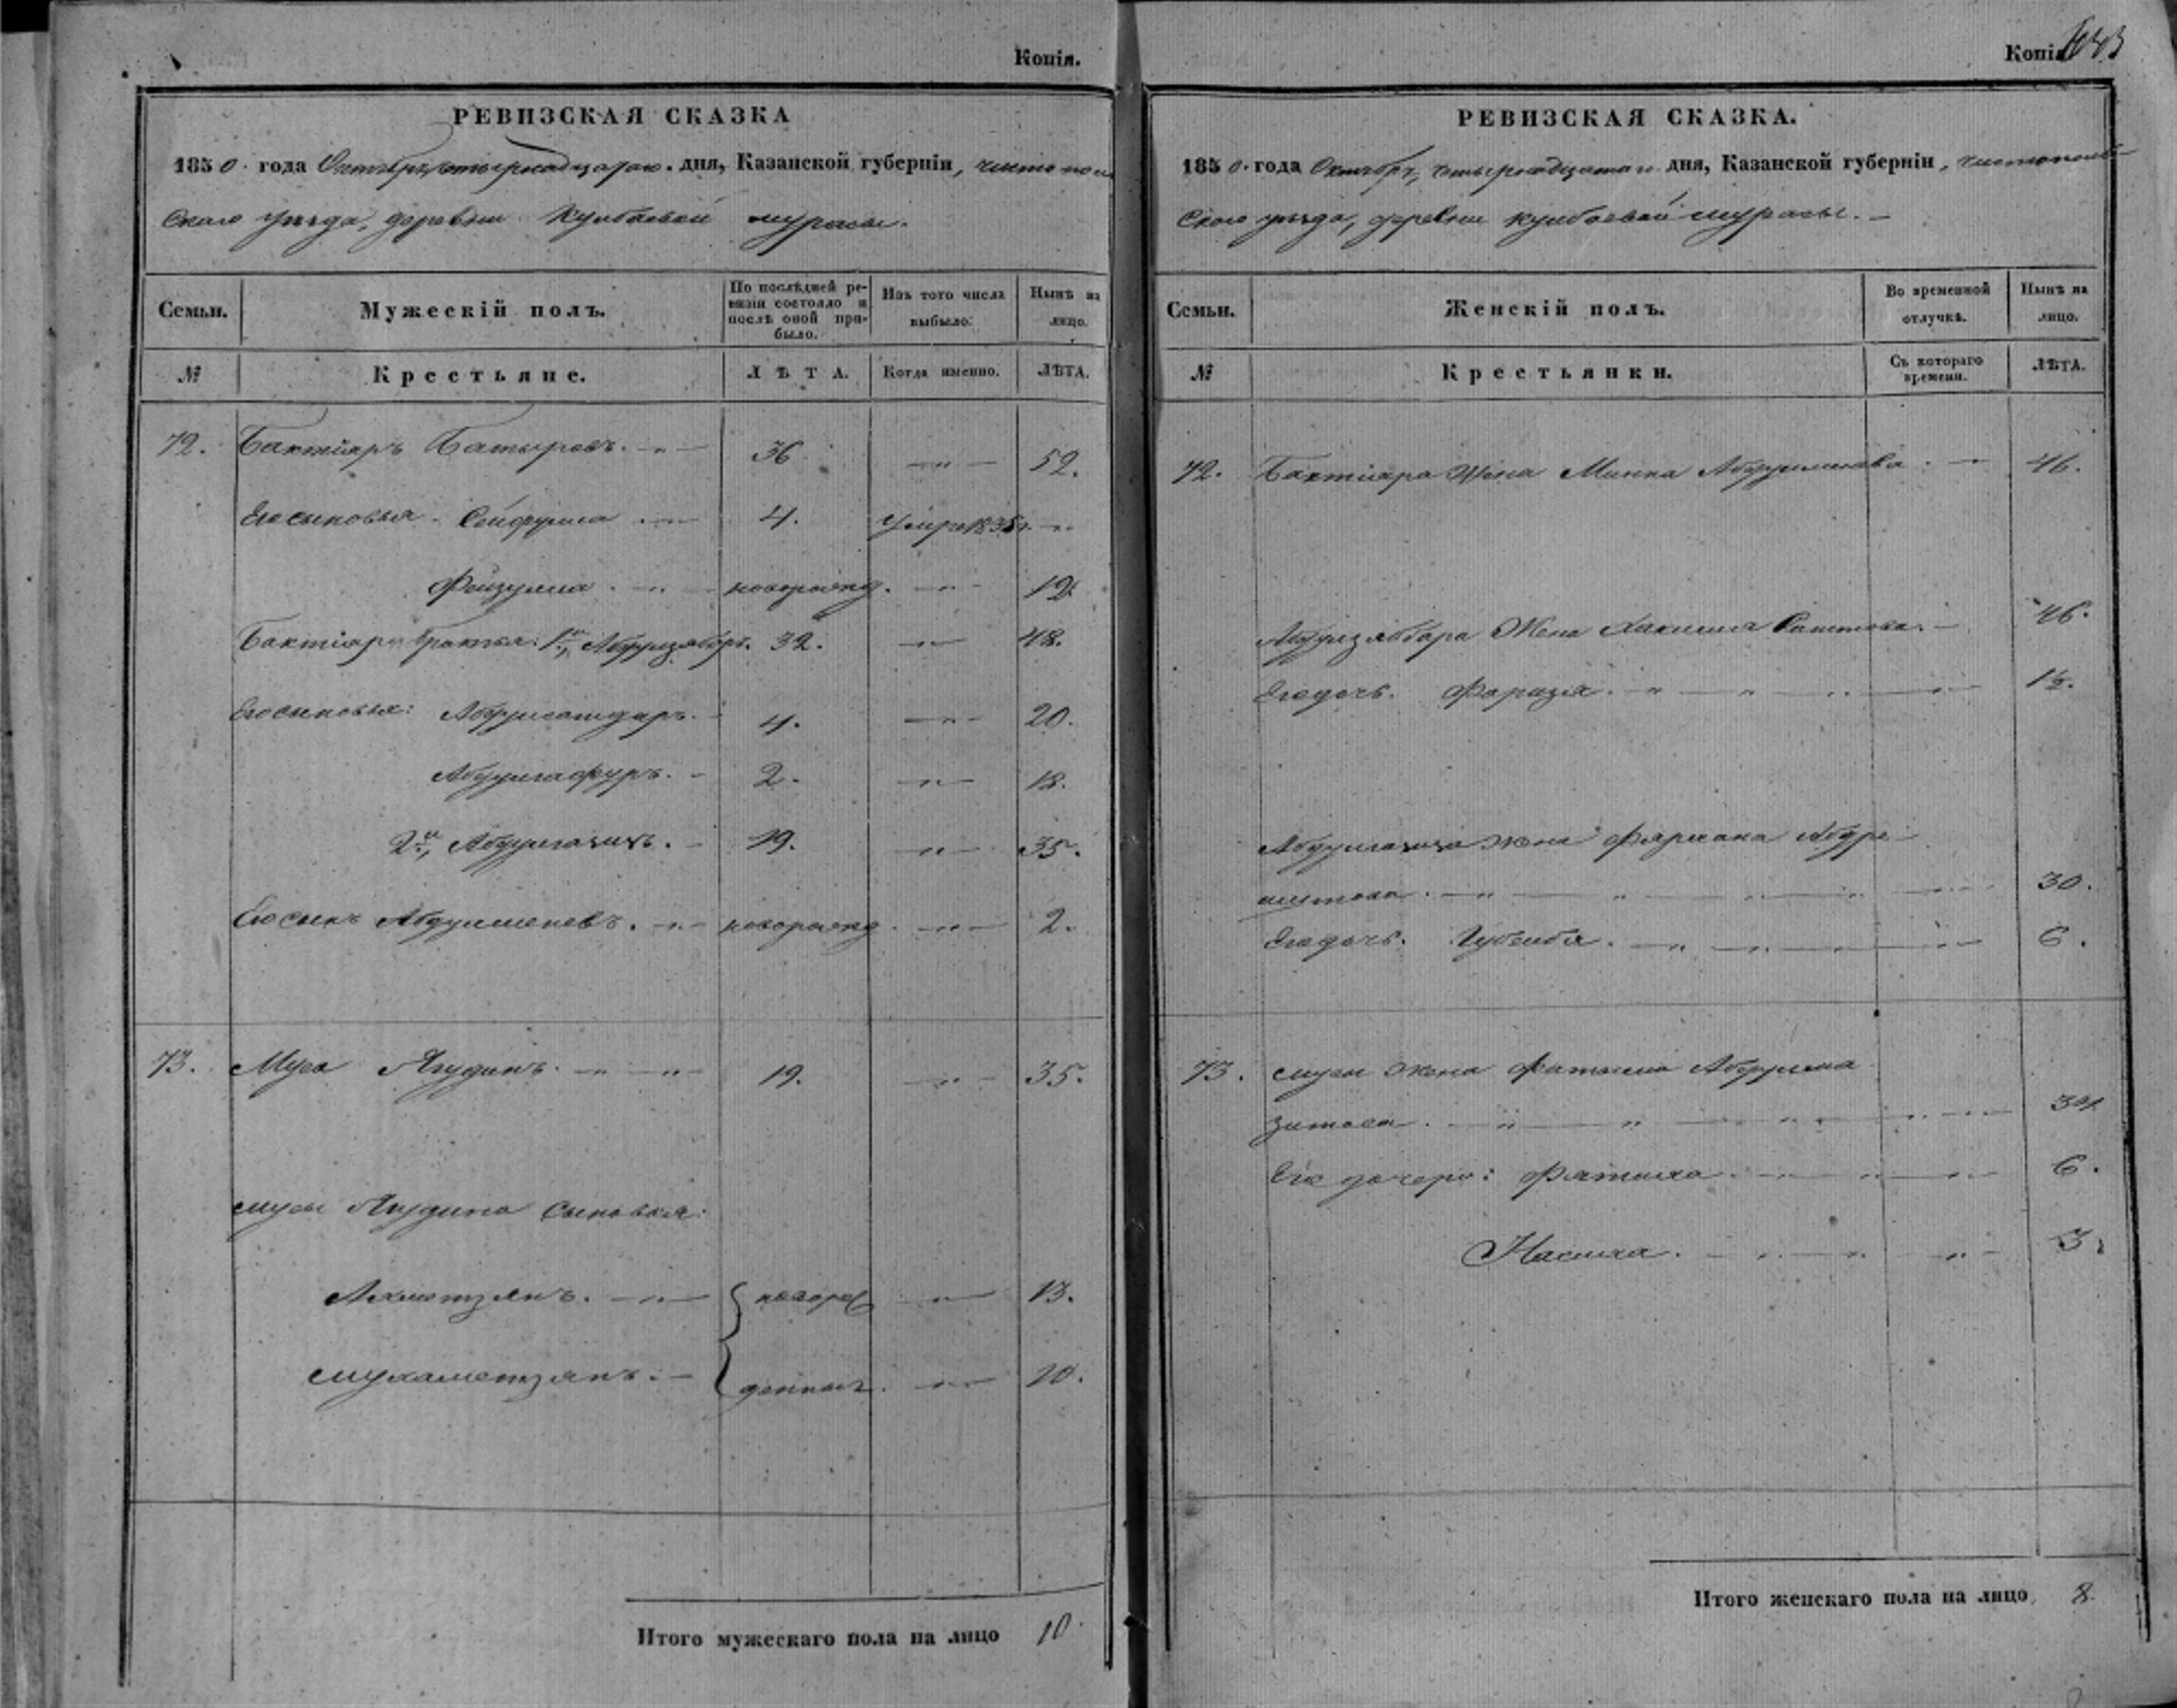 Копія.
РЕВИЗСКАЯ СКАЗКА
1850. года Октября четырнадцатаго. дня, Казанской губерніи, чистополь
скаго уѣзда, деревни Кулбаевой мурасы.
Семьи. Мужескій полъ. По послѣдней ревизіи состояло и послѣ оной прибыло. Изъ того числа выбыло: Нынѣ на лицо.
№ Крестьяне. ЛѢТА. Когда именно. ЛѢТА.
72. Бактіяръ Батыровъ. 36 52.
Его сыновья. Сейфулла 4. умре 1835 г.
Фейзулла. новорожд. 12.
Бактіяра братья: 1й, Абдулзябаръ. 32. 48.
Его сыновья: Абдулсатдаръ. 4. 20.
Абдулгафуръ. 2. 18.
2й, Абдулгазизъ. 19. 35.
Его сынъ новорожд 2.
73. Муса Ягудинъ. 19. 35.
мусы Ягудина сыновья:
Ахметзянъ. новоро 13.
мухаметзянъ. жденные. 10.
Итого мужескаго пола на лицо 10.
Копія
РЕВИЗСКАЯ СКАЗКА.
1850. года Октября, четырнадцатаго дня, Казанской губерніи, чистополь-
скаго уѣзда, деревни кулбаевой мурасы.
Семьи. Женскій полъ. Во временной отлучкѣ. Нынѣ на лицо.
№ Крестьянки. Съ котораго времени. ЛѢТА.
72. Бактіяра Жена Минка 46.
Абдулзяббара Жена 46.
Его дочь. Фаризя.
Абдулгазиза жена Абдре-
шитова. 30.
Его дочь. 6.
73. мусы жена Фатыма Абдулма
зитова. 34.
Его дочери: Фатыма. 6.
3.
Итого женскаго пола на лицо 8.